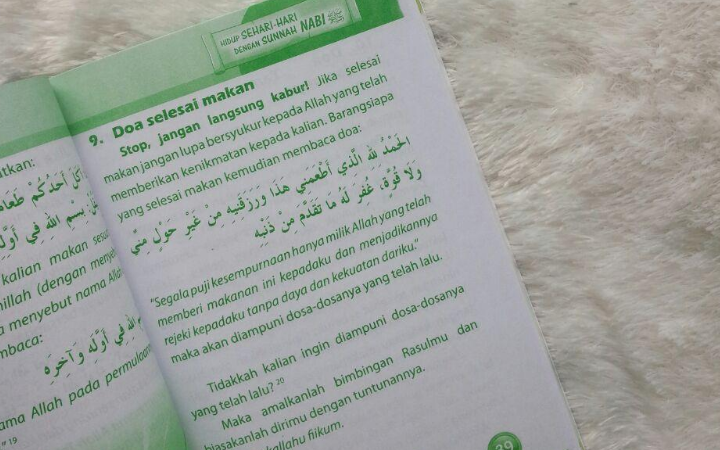 ltkan:
أَكَلَ أَحَدُكُمْ
بِسْمِ اللهِ فِي
kalian makan
millah (dengan
menyebut nama
mbaca:
اللهِ فِي أَوَّلِهِ وَآخِرِهِ
ama Allah pada
" 19
HIDUP SEHARI-HARI
DENGAN SUNNAH NABI
9. Doa selesai makan
Stop, jangan langsung kabur! Jika selesai
makan jangan lupa bersyukur kepada Allah yang telah
memberikan kenikmatan kepada kalian. Barangsiapa
yang selesai makan kemudian membaca doa:
الْحَمْدُ لِلهِ الَّذِي أَطْعَمَنِي هَذَا وَرَزَقَنِيهِ مِنْ غَيْرِ حَوْلٍ مِنِّي
وَلَا قُوَّةٍ، غُفِرَ لَهُ مَا تَقَدَّمَ مِنْ ذَنْبِهِ
"Segala puji kesempurnaan hanya milik Allah yang telah
memberi makanan ini kepadaku dan menjadikannya
rejeki kepadaku tanpa daya dan kekuatan dariku."
maka akan diampuni dosa-dosanya yang telah lalu.
Tidakkah kalian ingin diampuni dosa-dosanya
yang telah lalu? 20
Maka amalkanlah bimbingan Rasulmu dan
biasakanlah dirimu dengan tuntunannya.
kallahu fiikum.
39